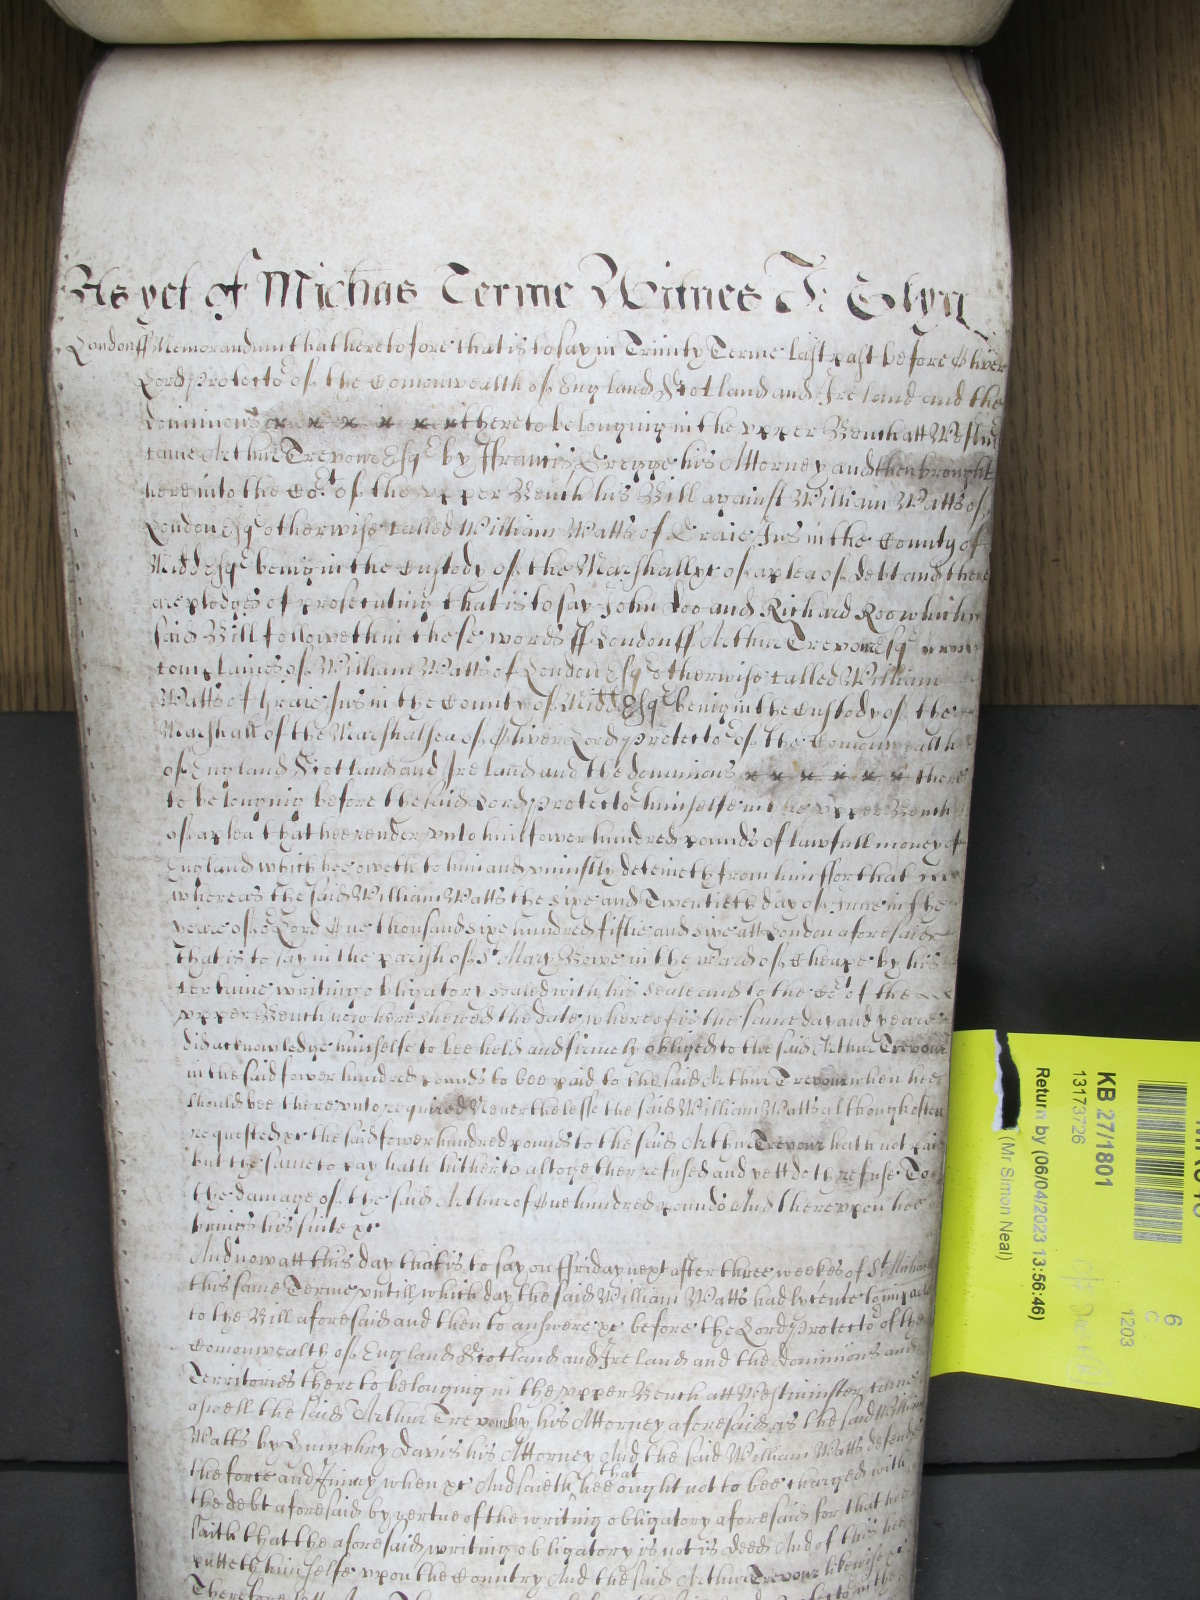 As yet of Michas Terme Witnes J: Glyn
London ss Memorandum that heretofore that is to say in Trinity Terme last past before Oliver
Lord Protector of the Comonwealth of England Scotland and Ireland and the
dominions x x x x x x thereto belonging in the upper Bench att Westm
came Arthur Trevour Esq by Ffrancis Greggehis Attorney and then brought
here into the Cort of the upper Bench his Bill against William Watts of
London Esq otherwise called William Watts of Graies Inn in the County of
Midd Esq being in the Custody of the Marshall xc of a plea of debt and there
are pledges of prosecuting that is to say John Doo and Richard Roo which
said Bill followeth in these words ss London ss Arthur Trevour Esq
complaines of William Watts of London Esq otherwise called William
Watts of Graies Inn in the County of Midd Esq being in the Custody of the
Marshall of the Marshalsea of Oliver Lord Protector of the Comonwealth
of England Scotland and Ireland and the dominions x x x x x x there
to belonging before the said Lord Protector himselfe in the upper Bench
of a plea that hee render unto him fower hundred pounds of lawfull money of
England which hee oweth to him and uniustly deteineth from him ffor that
whereas the said William Watts the sixe and Twentieth day of June in the
yeare of or Lord One thousand sixe hundred fiftie and sixe att London aforesaid
that is to say in the parish of St Mary Bowe in the ward of Cheape by his
certaine writing obligatory sealed with his seale and to the Cort of the
upper Bench now here shewed the date whereof is the same day and yeare
did acknowledge himselfe to bee held and firmely obliged to the said Arthur Trevour
in the said fower hundred pounds to bee paid to the said Arthur Trevour when hee
should bee thereunto required Neverthelesse the said William Watts although often
requested xc the said fower hundred pounds to the said Arthur Trevour hath not paid
but the same to pay hath hitherto altogether refused and yett doth refuse To
the damage of the said Arthur of One hundred pounds And thereupon hee
brings his suite xc
And now att this day that is to say on ffriday next after three weekes of St Michaell
this same Terme untill which day the said William Watts had lycence to imparle
to the Bill aforesaid and then to answere xc before the Lord Protector of the
Comonwealth of England Scotland and Ireland and the dominions and
Territories thereto belonging in the upper Bench att Westminster came
aswell the said Arthur Trevour by his Attorney aforesaid as the said William
Watts by Humphry Davis his Attorney And the said William Watts defends
the force and Iniury when xc And saieth that hee ought not to bee charged with
the debt aforesaid by vertue of the writing obligatory aforesaid for that hee
saith that the aforesaid writing obligatory is not is deed And of this hee
putteth himselfe upon the Country And the said Arthur Trevour likewise
Therefore
KB 27/1801
13173726
Return by (06/04/2023 13:56:46)
(Mr Simon Neal)
6
1203